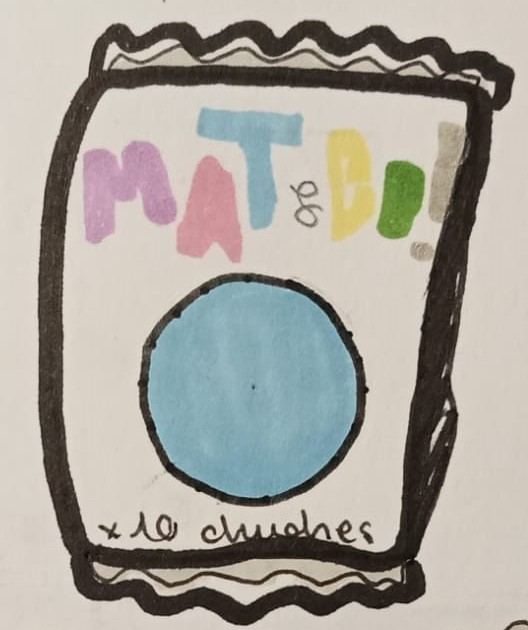 MAT & CO!
x10 chuches